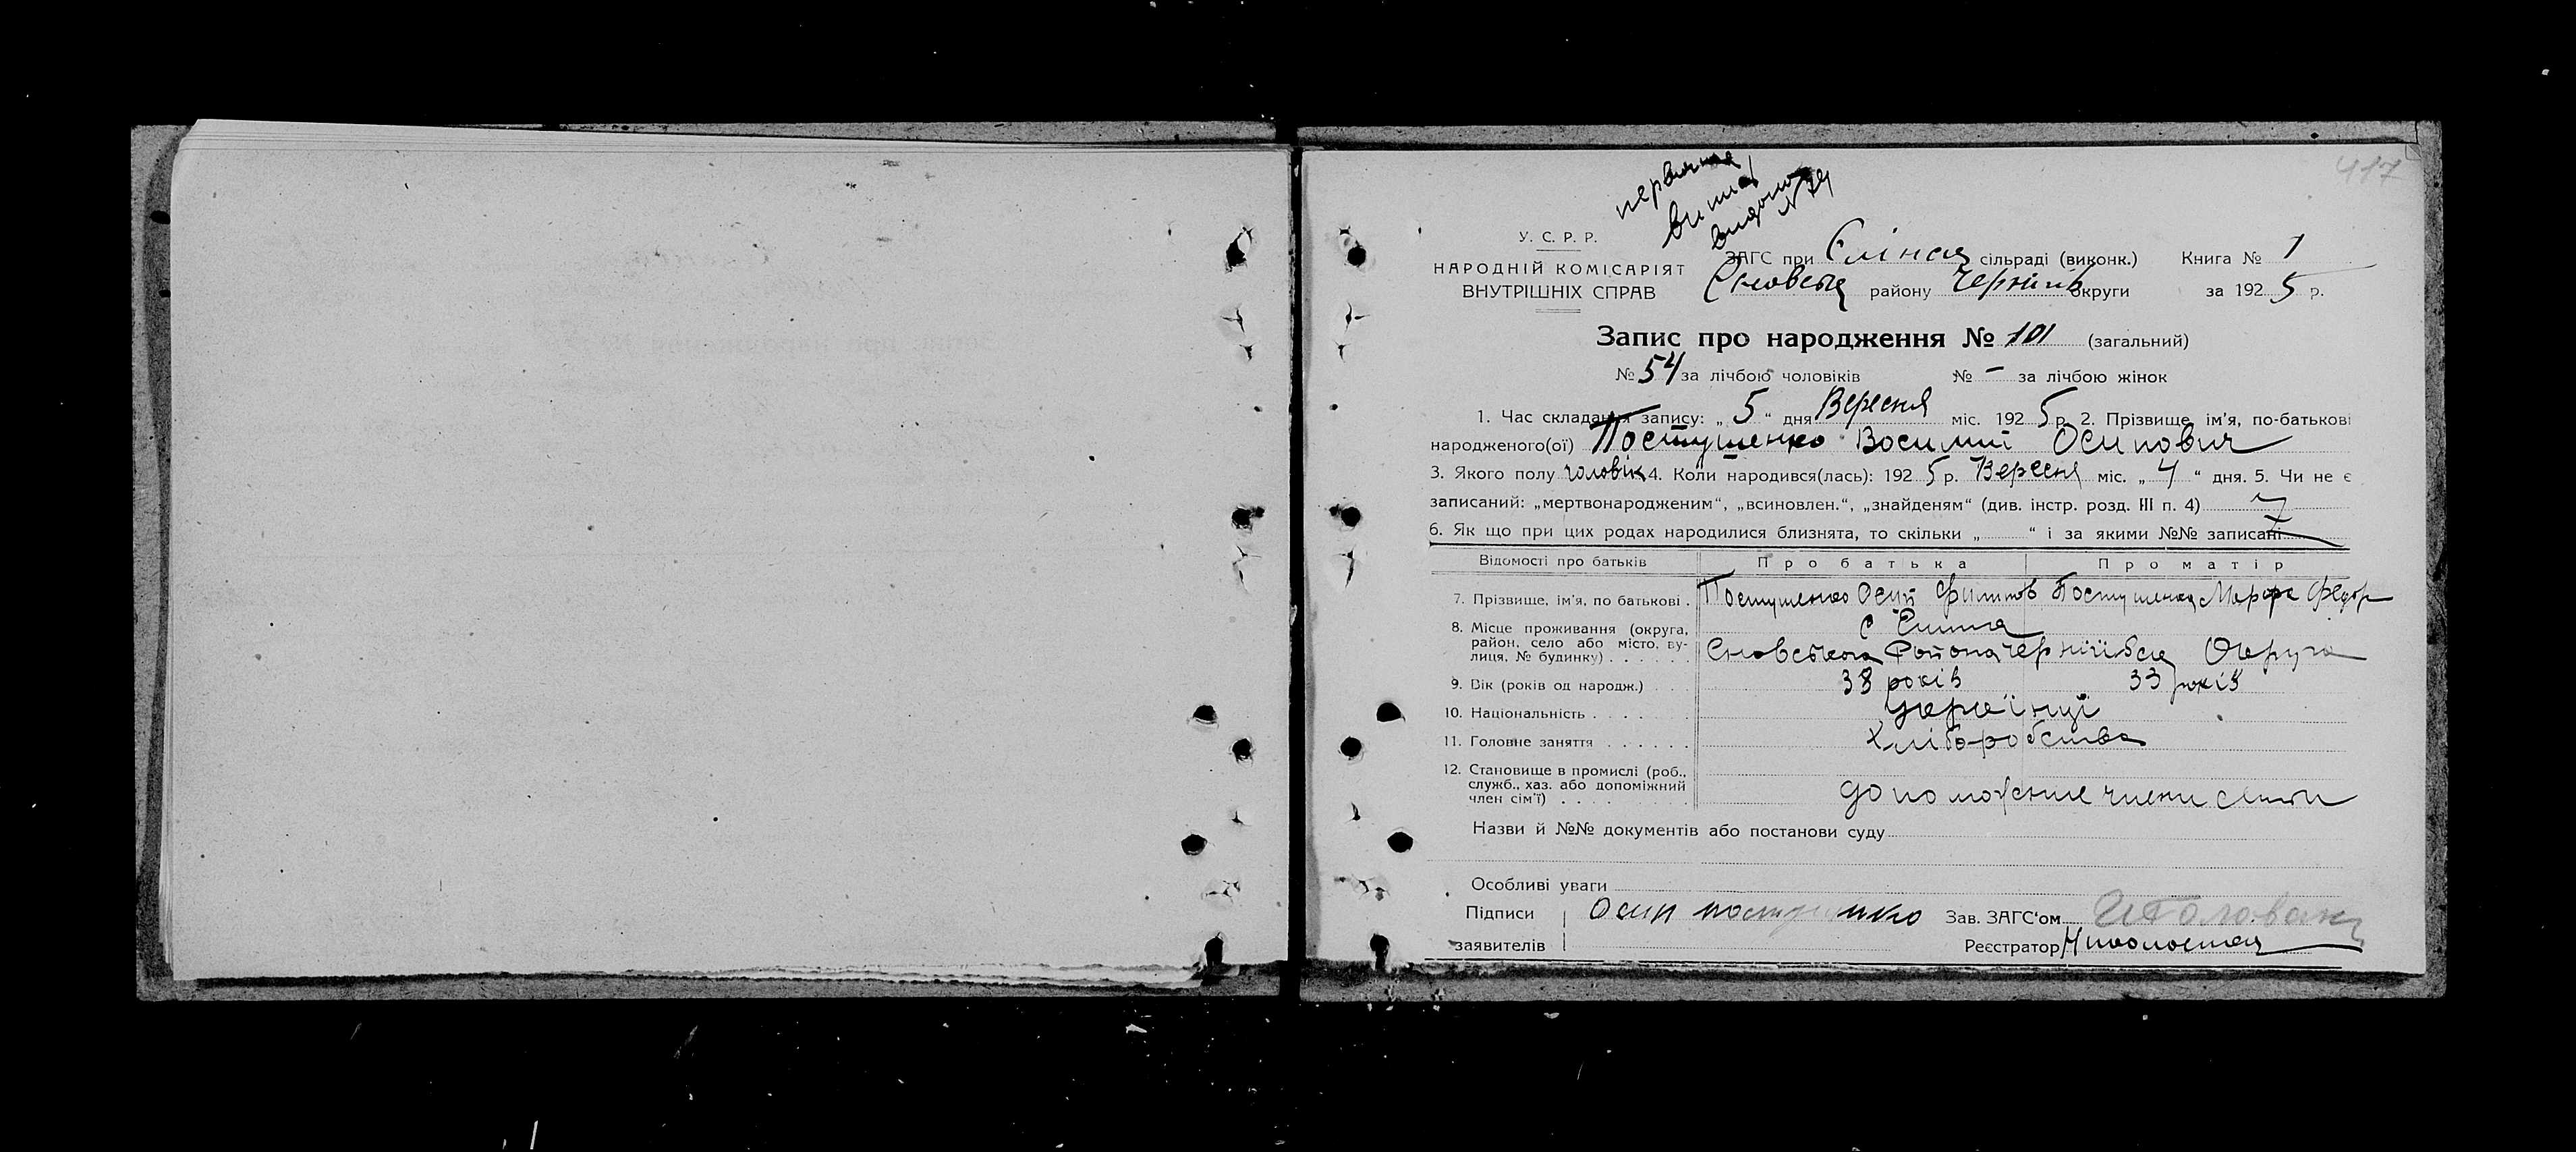 417
первична
У. С. Р. Р.
НАРОДНІЙ КОМІСАРІЯТ
ВНУТРІШНІХ СПРАВ
ЗАГС при Єлінск сільраді (виконк.) Книга № 1
Сновськ району Чернігів округи за 1925 р.
Запис про народження № 101 (загальний)
№ 54 за лічбою чоловіків № – за лічбою жінок
1. Час складання запису: „ 5 “ дня Вересня міс. 1925 р. 2. Прізвище, ім'я, по-батькові
народженого(ої) Постушенко Восилий Осипович
3. Якого полу чоловік 4. Коли народився(лась): 1925 р. Вересня міс. „ 4 “ дня. 5. Чи не є
записаний: „мертвонародженим“, „всиновлен.“, „знайденям“ (див. інстр. розд. III п. 4)
6. Як що при цих родах народилися близнята, то скільки „ “ і за якими №№ записані
Відомості про батьків Про батька Про матір
7. Прізвище, ім'я, по батькові . Постушенко Осип Филипов Постушенко Марфа Федор
8. Місце проживання (округа, район, село або місто, ву-лиця, № будинку) . . . . . . с Єлина
Сновського Района Чернігівск Округа
9. Вік (років од народж.) . . . 38 років 33 років
10. Національність . . . . . . Українці
11. Головне заняття . . . . . . Хліборобства
12. Становище в промислі (роб., служб., хаз. або допоміжний член сім'ї) . . . . допоможение члени сімти
Назви й №№ документів або постанови суду
Особливі уваги
Підписи Осип Зав. ЗАГС'ом
заявителів Реєстратор